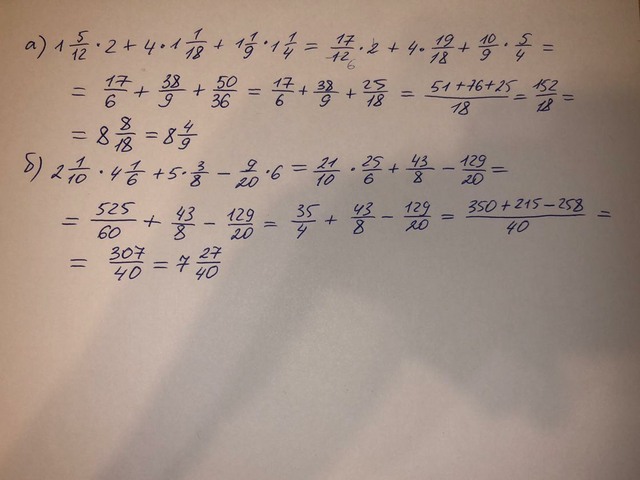 а) 1 5/12 · 2 + 4 · 1 1/18 + 1 1/9 · 1 1/4 = 17/12 6 · 2 + 4 · 19/18 + 10/9 · 5/4 =
= 17/6 + 38/9 + 50/36 = 17/6 + 38/9 + 25/18 = 51+76+25/18 = 152/18 =
= 8 8/18 = 8 4/9
б) 2 1/10 · 4 1/6 + 5 · 3/8 − 9/20 · 6 = 21/10 · 25/6 + 43/8 − 129/20 =
= 525/60 + 43/8 − 129/20 = 35/4 + 43/8 − 129/20 = 350+215−258/40 =
= 307/40 = 7 27/40